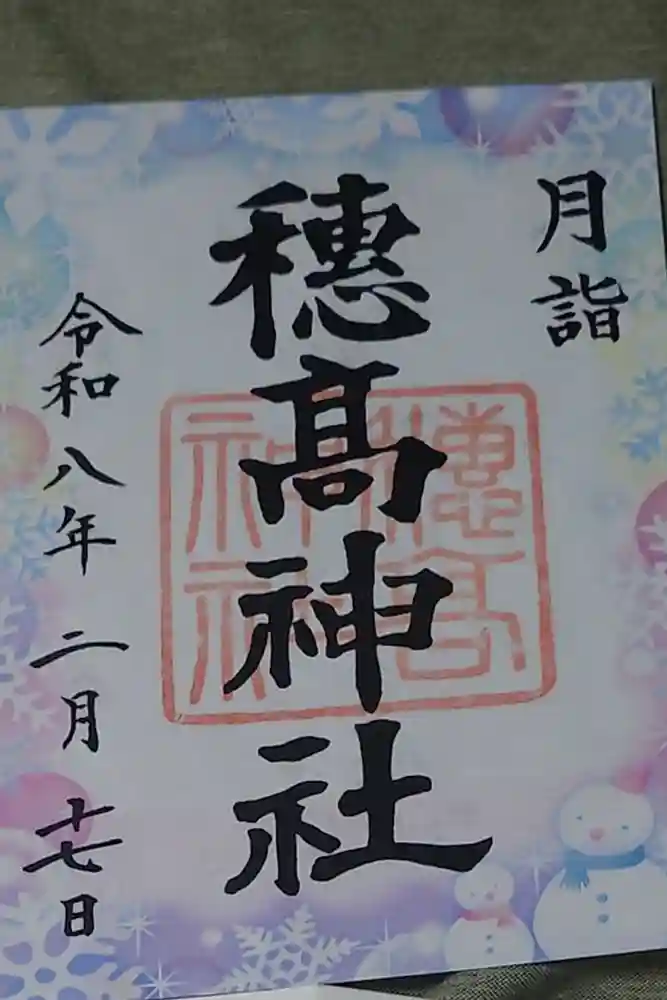 月詣
穂髙神社
令和八年二月十七日
穂髙
神社